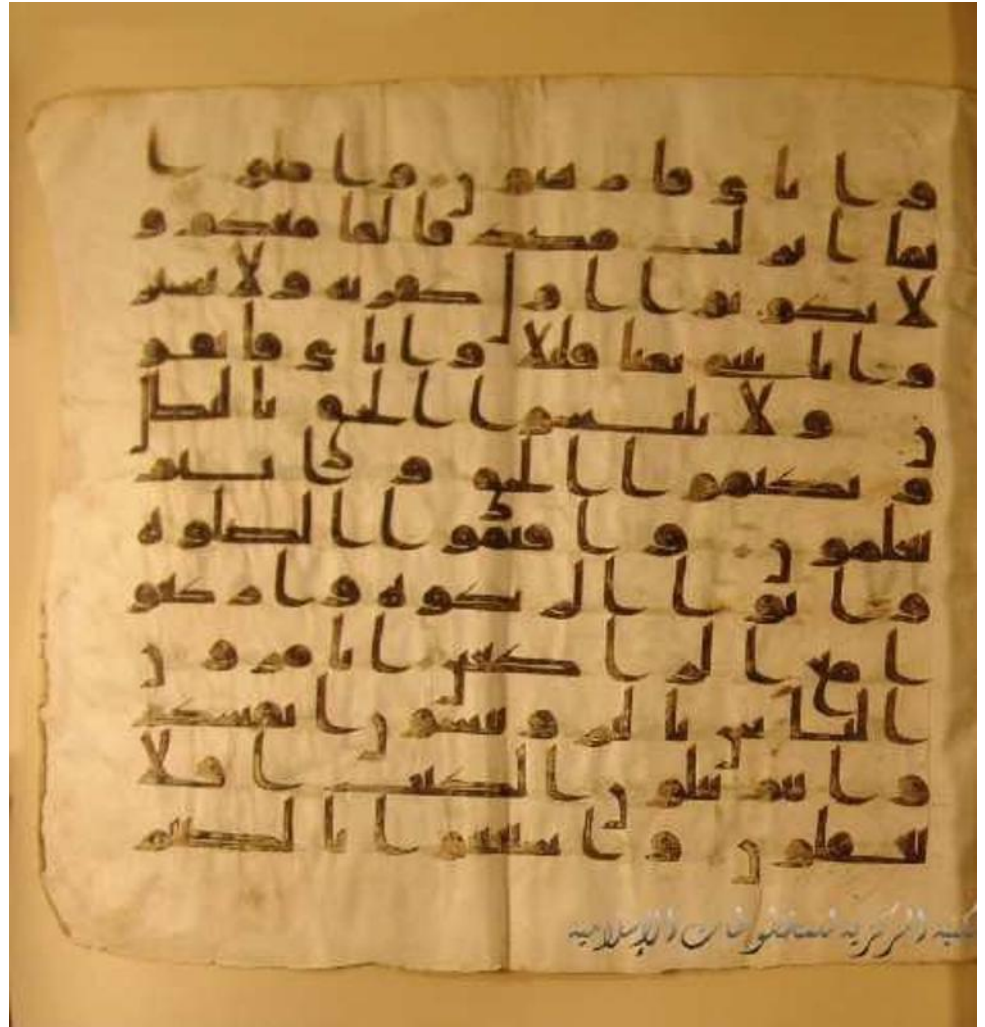 و ايى فارهبون وامنوا
بما انزلت مصدقا لما معكم و
لا تكونوا اول كفر به ولا تشتر
وا بايتى ثمنا قليلا وايى فاتقو
ن ولا تلبسوا الحق بالبطل
و تكتموا الحق وانتم
تعلمون واقيموا الصلوه
واتوا الزكوه واركعو
ا مع الركعين اتامرون
الناس بالبر وتنسون انفسكم
وانتم تتلون الكتب افلا
تعقلون واستعينوا بالصبر
كتبة المركزية للمخطوطات الإسلامية